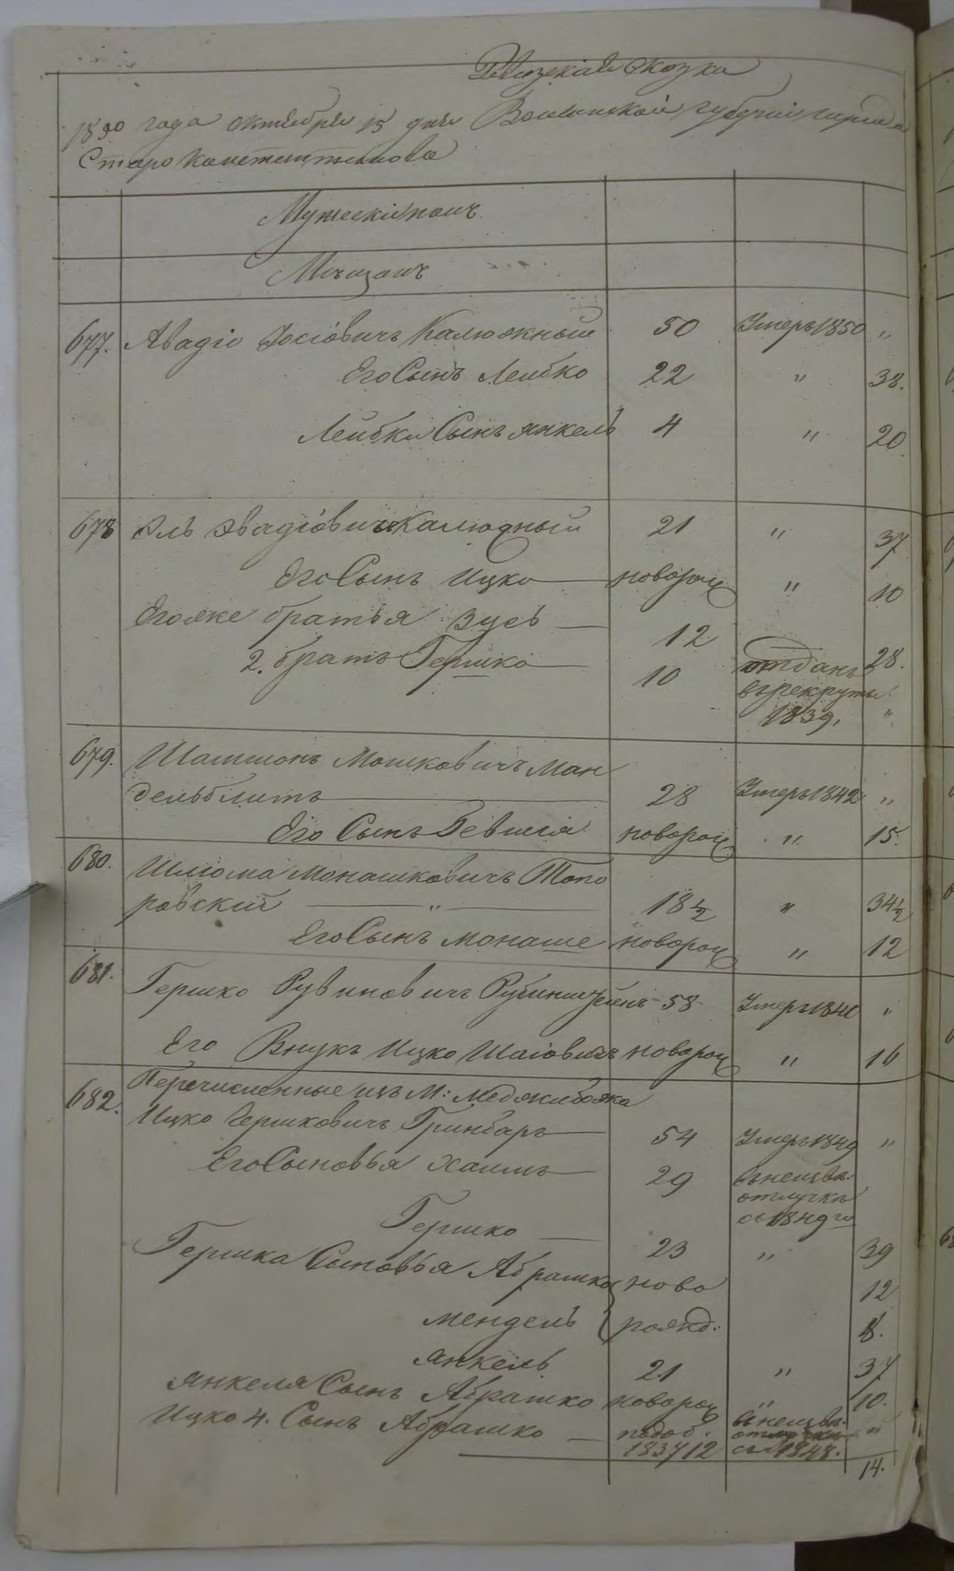 Ревизская Сказка
1850 года октября 15 дня Волынской губернии города
Старо Константинова
Мужескій полъ
Мещанъ
677. Авадіо Іосіовичъ Калюжный 50 Умеръ 1850 „
Его Сынъ Лейбко 22 „ 38.
Лейбки Сынъ Янкель 4 „ 20.
678 Эль Авадіовичъ Калюжный 21 „ 37
Его Сынъ Ицко новорож „ 10
Егоже братья Зусь — 12 28.
2. братъ Гершко — 10 отданъ
въ рекруты
1839. „
679. Шамшонъ Мошковичъ Ман
дельблитъ 28 Умеръ 1842 „
Его Сынъ новорож „ 15.
680. Шліома Монашковичъ Топо
ровскій — „ — 18½ „ 34½
Его Сынъ Монаше новорож „ 12
681. Гершко Рувиновичъ Рубинштейнъ 58 Умеръ 1840 „
Его Внукъ Ицко Шаіовичъ новорож „ 16
682. Перечисленные изъ М: Меджибожа
Ицко Гершковичъ Гринбаръ — 54 Умеръ 1849 „
Его Сыновья Хаимъ — 29 въ неизвъ.
отлучкѣ
съ 1849 го
Гершко — 23 „ 39
Гершка Сыновья Абрашко ново 12
Мендель рожд: 8.
Янкель 21 „ 37
Янкеля Сынъ Абрашко новорож „ 10.
Ицко 4. Сынъ Абрашко — въ неизвъ. „
1837 12 отлучкѣ
съ 1848.
14.